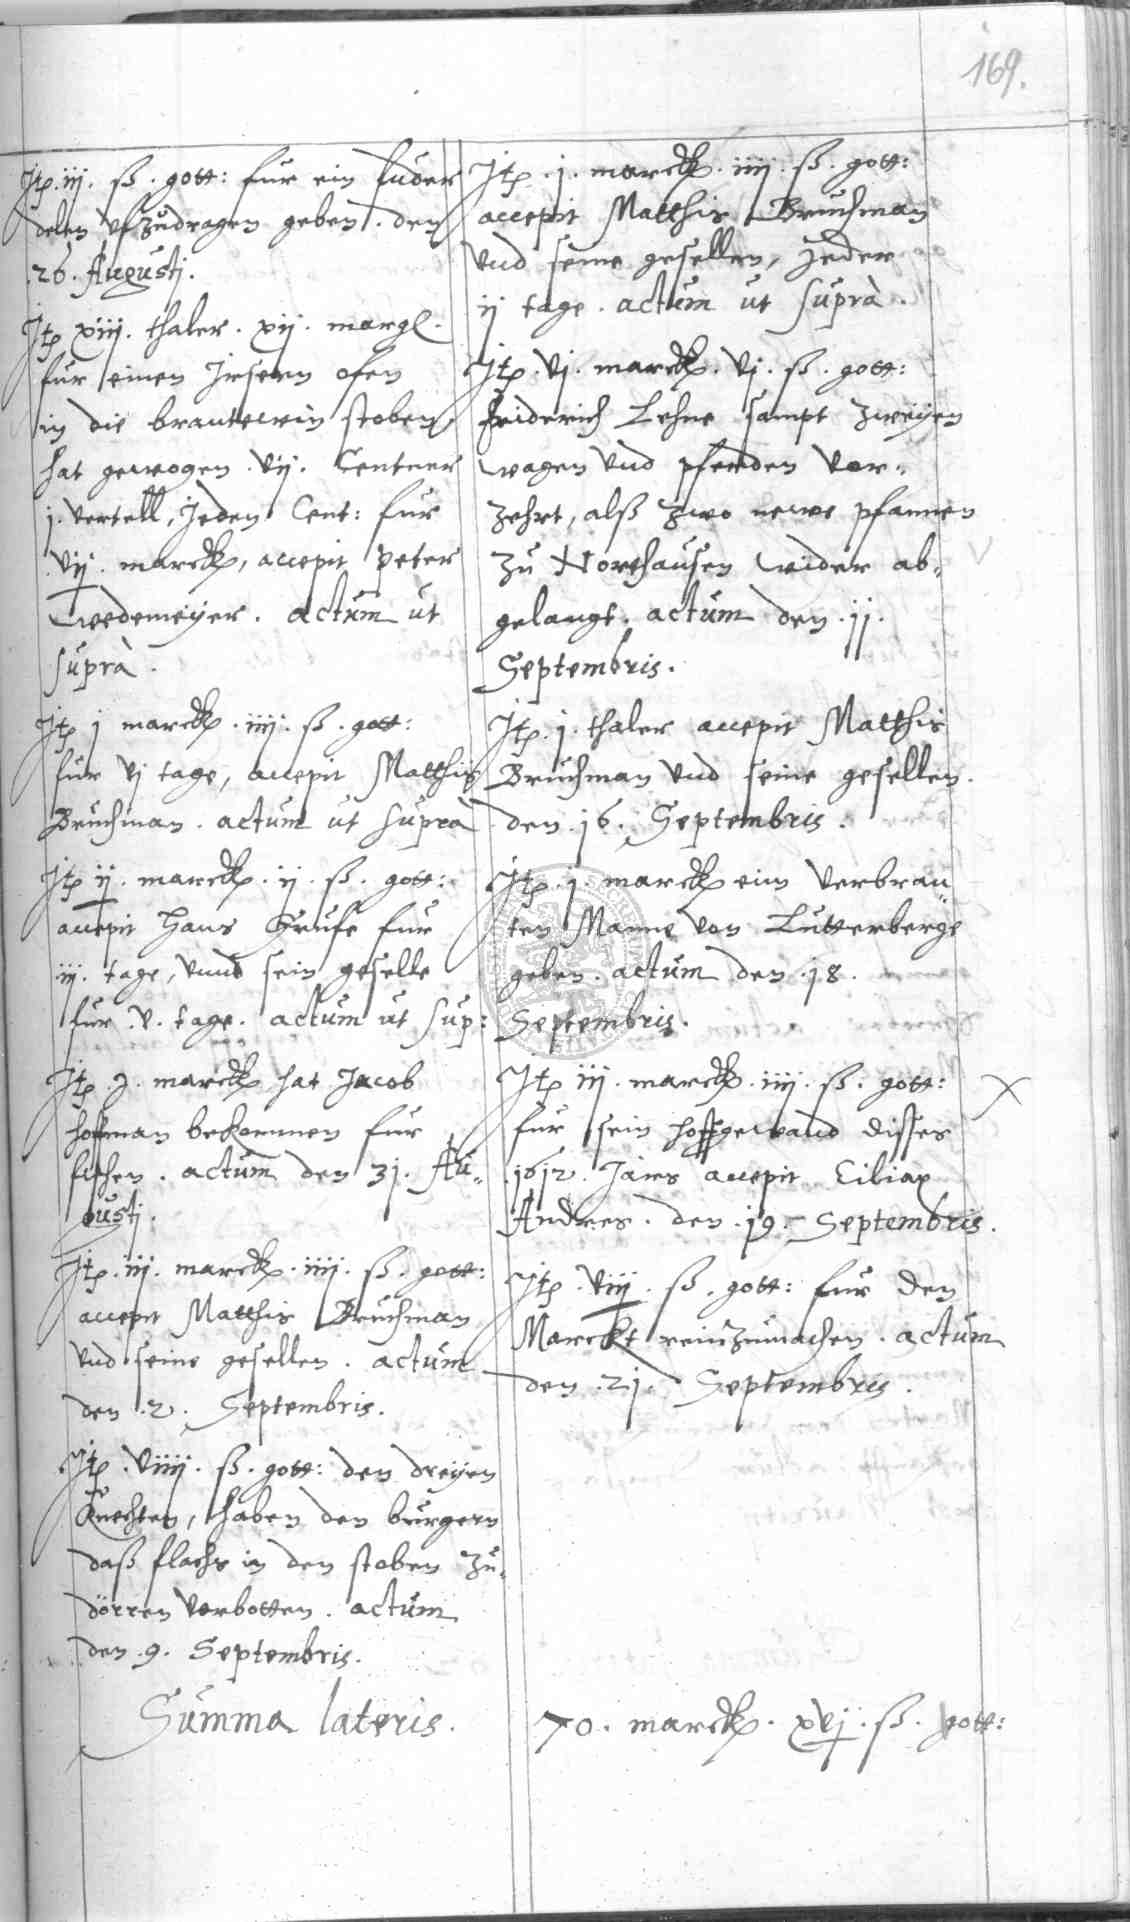 169.
Itp. iij. ß. gott: fur ein fuder
delen ufzudragen geben. den
26. Augustj.
Itp xiij. thaler. xij. margl.
fur einen Jrsern ofen
in die brautewin stoben,
hat gewogen. vij. Centner
j. vertell, Jeden Cent: fur
vij. marck, accepit Peter
Wedemeÿer. actum ut
suprà.
Itp j marck. iiij. ß. gott:
fur vj tage, accepit Matthis
Bruchman. actum ut suprà
Itp ij. marck. ij. ß. gott:
accepit Hans Grufe fur
iij. tage, unnd sein geselle
fur. v. tage. actum ut sup:
Itp. j. marck hat Jacob
Hoffman bekommen fur
fichen. actum den 31. Au-
gustj.
Itp. iij. marck. iiij. ß. gott:
accepit Matthis Bruchman
und seine gesellen. actum
den. 2. Septembris.
Itp. viiij. ß. gott: den dreÿen
Knechten, haben den burgern
daß flachs in den stoben zu-
dörren verbotten. actum
den. 9. Septembris.
Summa lateris.
Itp. j. marck. iiij. ß. gott:
accepit Matthis Bruchman
und seine gesellen, Jeder
ij tage. actum ut suprà.
Itp. vj. marck. vj. ß. gott:
Friderich Lehne sampt zweÿen
wagen und pferden vor-
zehrt, alß zwo newe pfannen
zu Northausen wider ab-
gelangt. actum den. 11.
Septembris.
Itp. j. thaler accepit Matthis
Bruchman und seine gesellen.
den. 16. Septembris.
Itp. j. marck eim verbrau
ten Manne von Lutterberge
geben. actum den. 18.
Septembris.
Itp iij. marck. iiij. ß. gott:
fur sein hoffgewand disses
1612. Jars accepit Ciliax
Andres. den. 19. Septembris.
Itp. viij. ß. gott: fur den
Marckt reinzumachen. actum
den. 21. Septembris.
70. marck. xvj. ß. gott: